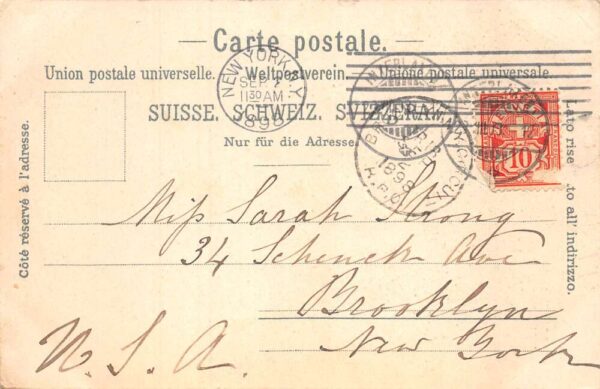 Carte postale.
Union postale universelle. Weltpostverein. Unione postale universale.
SUISSE. SCHWEIZ. SVIZZERA.
Nur für die Adresse.
Côté réservé à l'adresse.
Lato rise to all' indirizzo.
NEW YORK, N.Y.
SEP
11 30 AM
1898
INTERLAKEN
10
1898
Miss Sarah Strong
34 Schenck Ave
Brooklyn
New York
U. S. A.